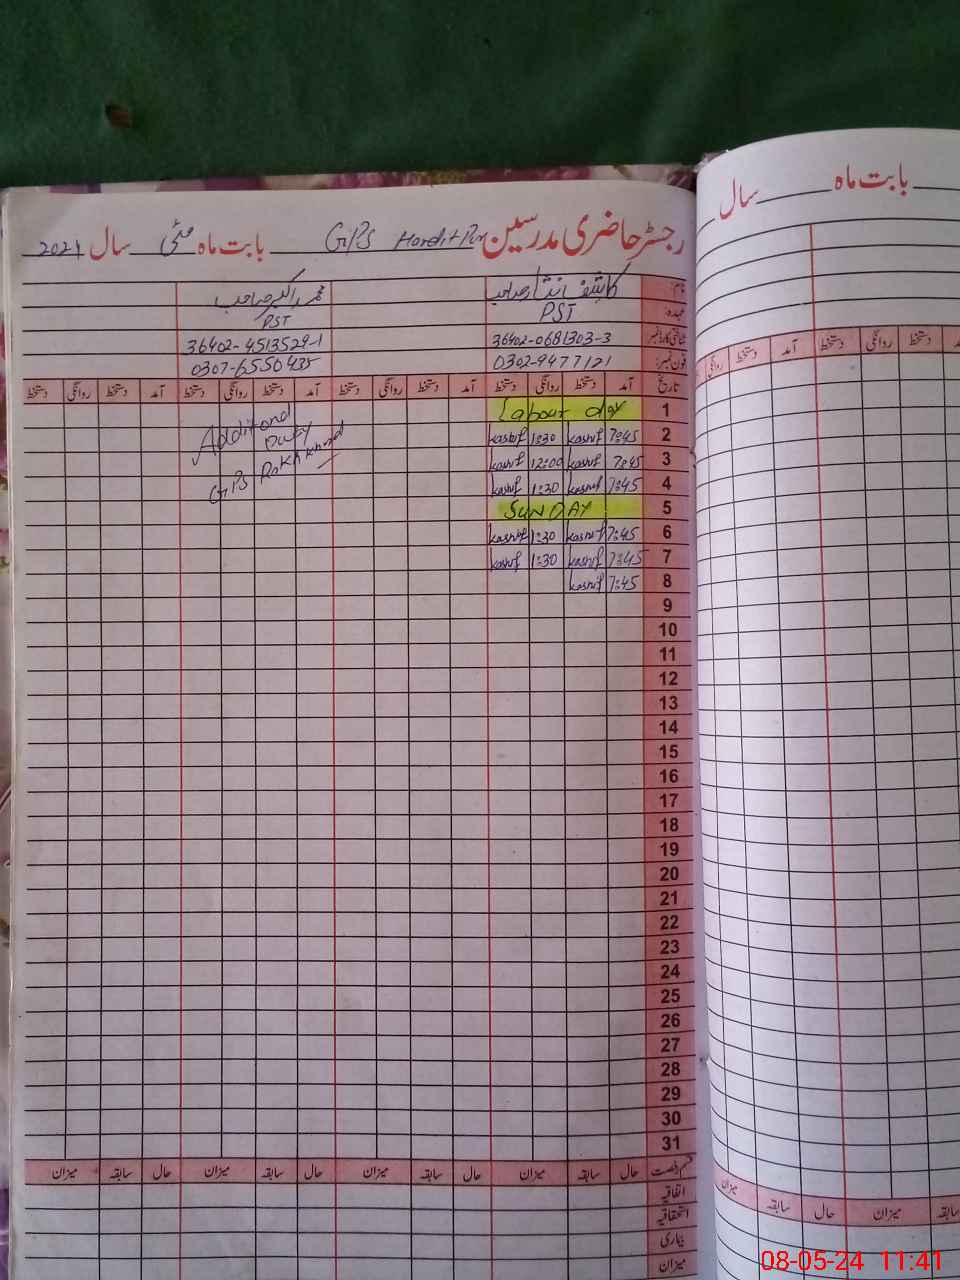 رجسٹر حاضری مدرسین GPS Hardit Pur بابت ماہ مئی سال 2024
نام: کاشف انشا صاحب محمد اکبر صاحب
عہدہ: PST PST
شناختی کارڈ نمبر 36402-0681303-3 36402-4513529-1
فون نمبر: 0302-9477121 0307-6550435
تاریخ آمد دستخط روانگی دستخط آمد دستخط روانگی دستخط آمد دستخط روانگی دستخط آمد دستخط روانگی دستخط
1 Labour day
2 7:45 kashif 1:30 kashif
3 7:45 kashif 12:00 kashif
4 7:45 kashif 1:30 kashif
5 SUNDAY
6 7:45 kashif 1:30 kashif
7 7:45 kashif 1:30 kashif
8 7:45 kashif
Additional
Duty
GPS Rakh
9
10
11
12
13
14
15
16
17
18
19
20
21
22
23
24
25
26
27
28
29
30
31
قسم رخصت حال سابقہ میزان حال سابقہ میزان حال سابقہ میزان حال سابقہ میزان
اتفاقیہ
استحقاقیہ
بیماری
میزان
بابت ماہ سال
آمد دستخط روانگی دستخط آمد دستخط روانگی
سابقہ میزان حال سابقہ میزان
08-05-24 11:41